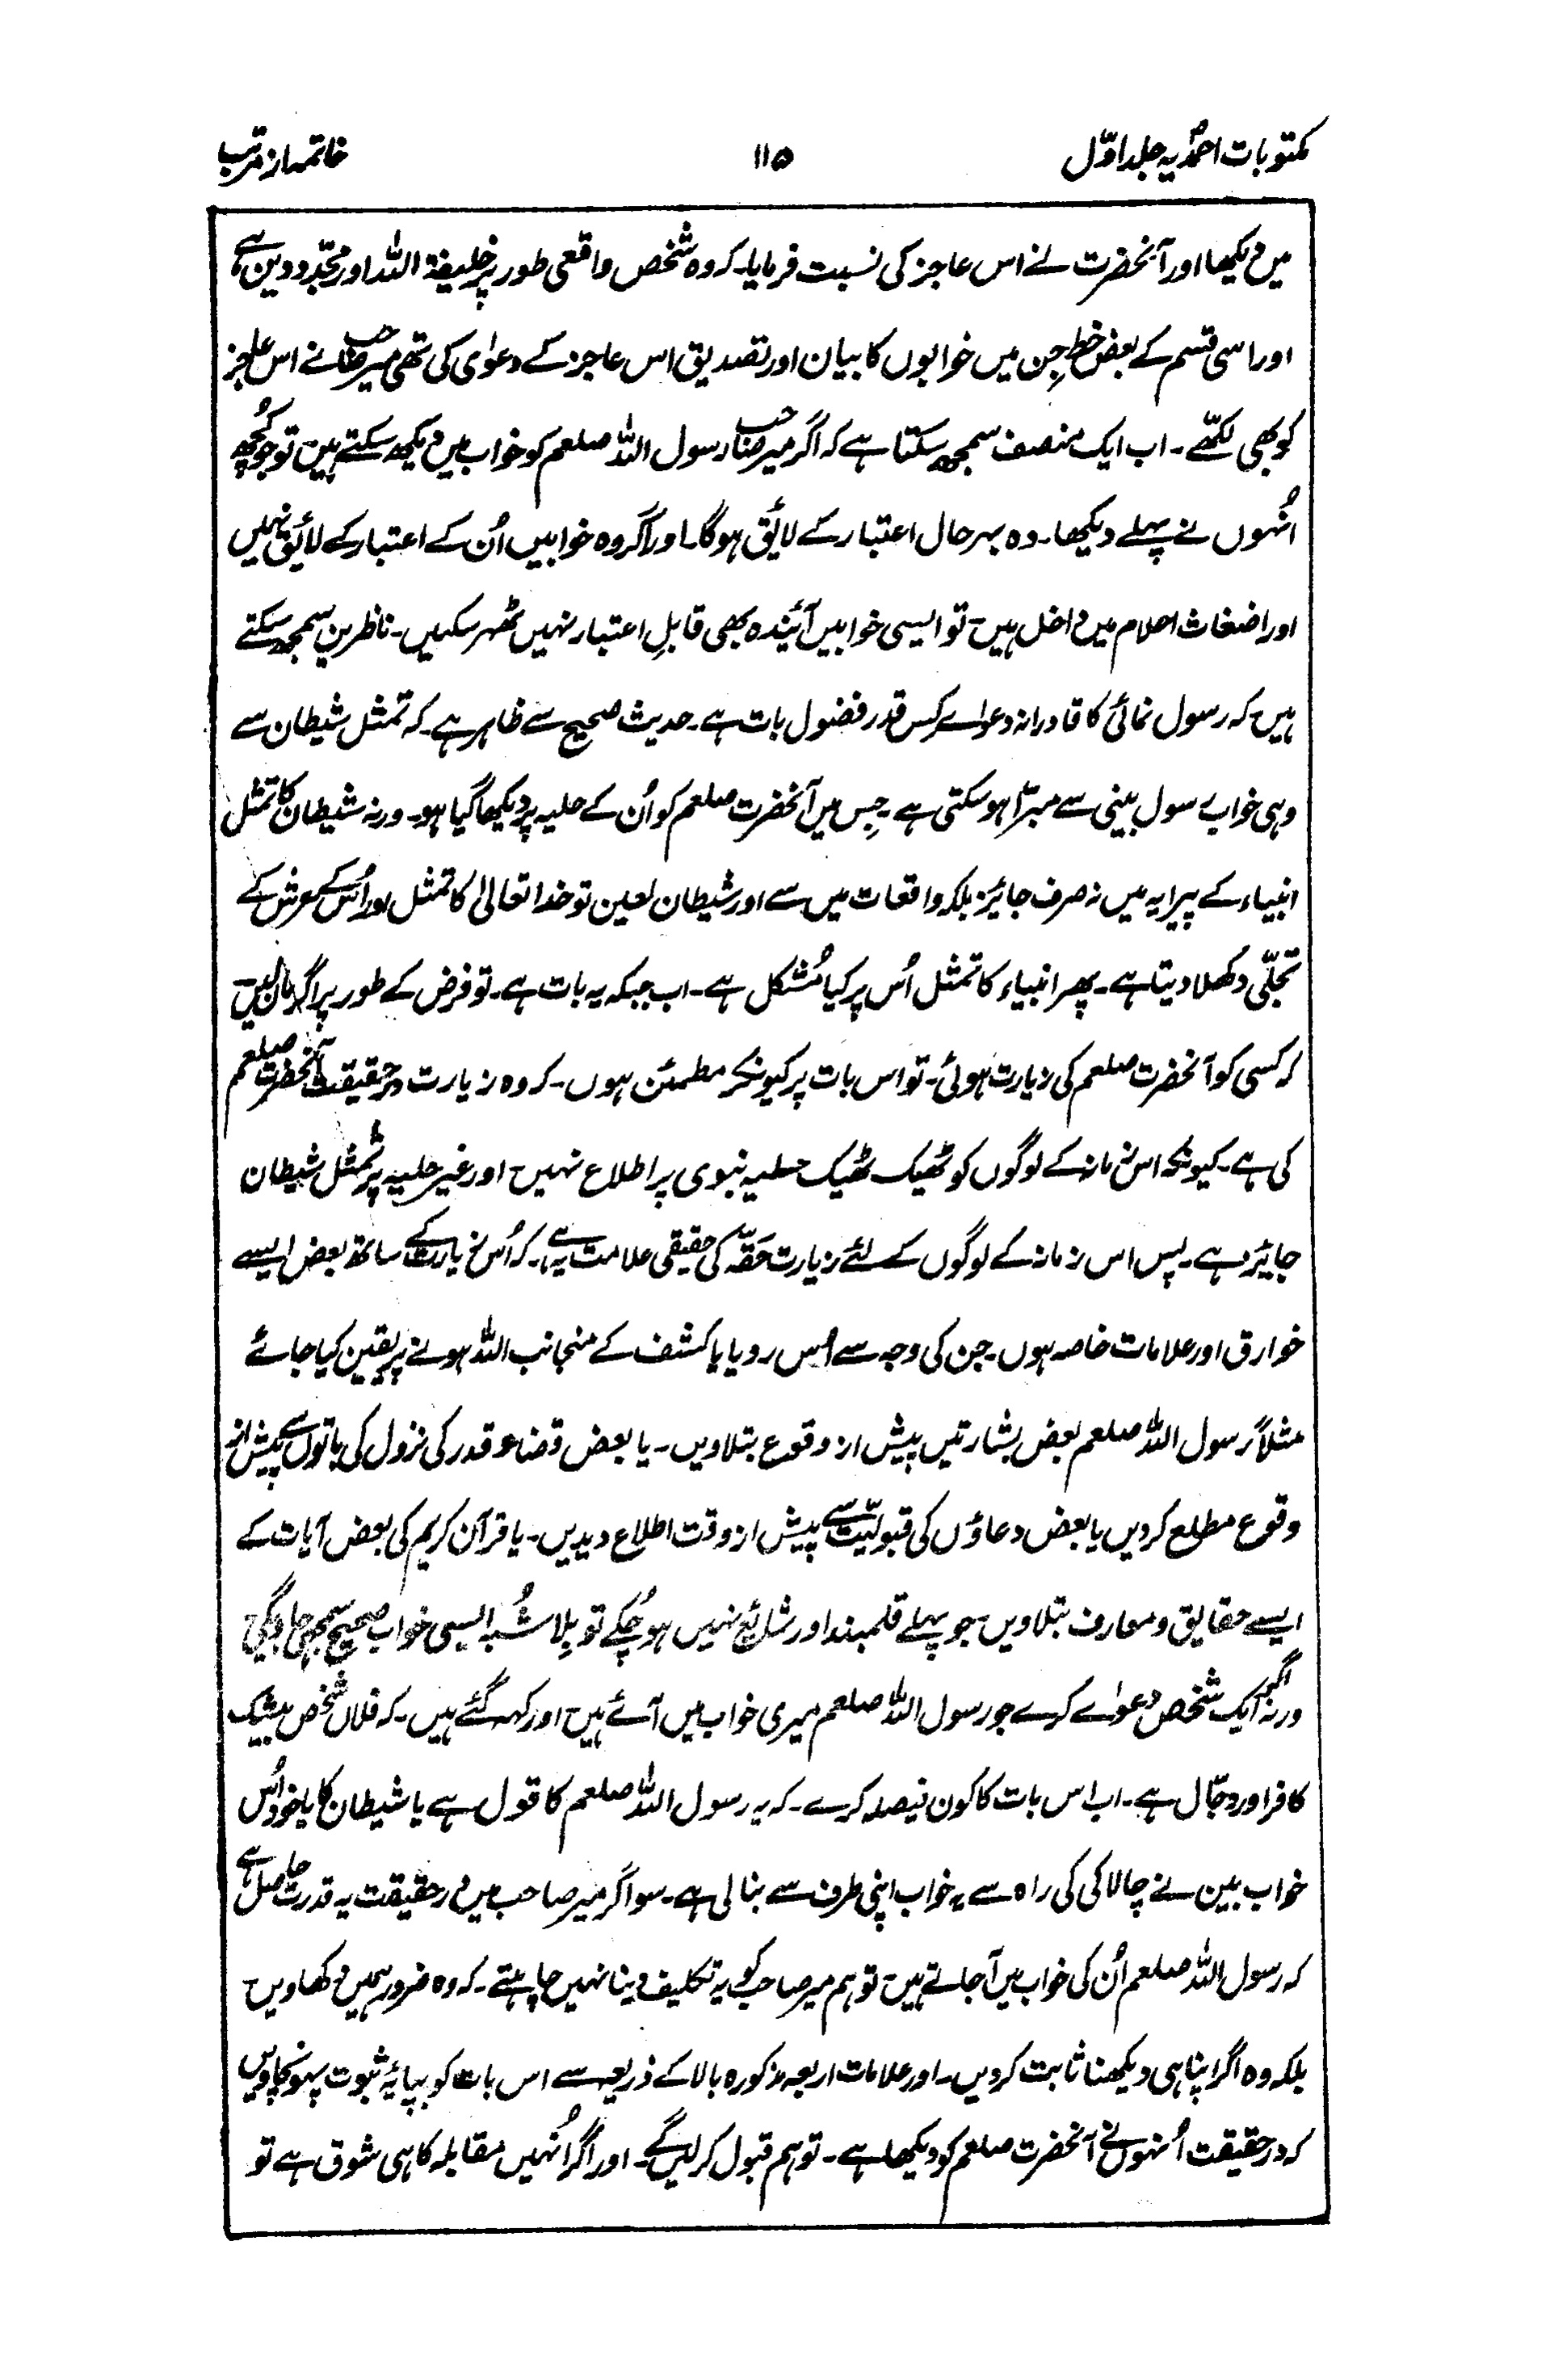 مکتوبات احمدیہ جلد اوّل
۱۱۵
خاتمہ از مرتب
میں دیکھا اور آنحضرت نے اس عاجز کی نسبت فرمایا۔ کہ وہ شخص واقعی طور پر خلیفۃ اللہ اور مجدّد دین ہے
اور اسی قسم کے بعض خط جِن میں خوابوں کا بیان اور تصدیق اس عاجز کے دعوٰی کی تھی میر صاحب نے اس عاجز
کو بھی لکھّے۔ اب ایک منصف سمجھ سکتا ہے کہ اگر میر صاحب رسول اللہ صلعم کو خواب میں دیکھ سکتے ہیں تو جو کُچھ
اُنہوں نے پہلے دیکھا۔ وہ بہرحال اعتبار کے لائق ہوگا۔ اور اگر وہ خوابیں اُن کے اعتبار کے لائق نہیں
اور اضغاث احلام میں داخل ہیں۔ تو ایسی خوابیں آئیندہ بھی قابلِ اعتبار نہیں ٹھہر سکیں۔ ناظرین سمجھ سکتے
ہیں کہ رسول نمائی کا قادرانہ دعواے کِس قدر فضول بات ہے۔ حدیث صحیح سے ظاہر ہے۔ کہ تمثل شیطان سے
وہی خواب رسول بینی سے مبرّا ہوسکتی ہے۔ جِس میں آنحضرت صلعم کو اُن کے حلیہ پر دیکھا گیا ہو۔ ورنہ شیطان کا تمثل
انبیاء کے پیرایہ میں نہ صرف جائیز بلکہ واقعات میں سے اور شیطان لعین تو خدا تعالٰی کا تمثل اور اُس کے عرش کے
تجلّی دُکھلا دیتا ہے۔ پھر انبیاء کا تمثل اُس پر کیا مُشکل ہے۔ اب جبکہ یہ بات ہے۔ تو فرض کے طور پر اگر مان لیں۔
کہ کسی کو آنحضرت صلعم کی زیارت ہوئی۔ تو اس بات پر کیونکر مطمئن ہوں۔ کہ وہ زیارت درحقیقت آنحضرت صلعم
کی ہے۔ کیونکہ اس زمانہ کے لوگوں کو ٹھیک ٹھیک حلیہ نبوی پر اطلاع نہیں۔ اور غیر حلیہ پر تمثل شیطان
جائیز ہے۔ پس اس زمانہ کے لوگوں کے لئے زیارت حَقّہ کی حقیقی علامت یہ ہے۔ کہ اُس زیارت کے ساتھ بعض ایسے
خوارق اور علامات خاصہ ہوں۔ جن کی وجہ سے اُس رویا یا کشف کے منجانب اللہ ہونے پر یقین کیا جائے
مثلاً رسول اللہ صلعم بعض بشارتیں پیش از وقوع بتلاویں۔ یا بعض قضا و قدر کی نزول کی باتوں سے پیش از
وقوع مطلع کردیں یا بعض دعاؤں کی قبولیّت سے پیش از وقت اطلاع دیدیں۔ یا قرآن کریم کی بعض آیات کے
ایسے حقایق و معارف بتلاویں۔ جو پہلے قلمبند اور شائع نہیں ہو چُکے تو بِلاشُبہ ایسی خواب صحیح سمجھی جاویگی
ورنہ اگر ایک شخص دعواے کرے جو رسول اللہ صلعم میری خواب میں آئے ہیں۔ اور کہہ گئے ہیں۔ کہ فلاں شخص بیشک
کافر اور دجّال ہے۔ اب اس بات کا کون فیصلہ کرے۔ کہ یہ رسول اللہ صلعم کا قول ہے یا شیطان کا یا خود اُس
خواب بین نے چالاکی کی راہ سے یہ خواب اپنی طرف سے بنا لی ہے۔ سو اگر میر صاحب میں درحقیقت یہ قدرت حاصل ہے
کہ رسول اللہ صلعم اُن کی خواب میں آجاتے ہیں۔ تو ہم میر صاحب کو یہ تکلیف دینا نہیں چاہتے۔ کہ وہ ضرور ہمیں دکھاویں۔
بلکہ وہ اگر اپنا ہی دیکھنا ثابت کردیں۔ اور علامات اربعہ مذکورہ بالا کے ذریعہ سے اس بات کو بپایۂ ثبوت پہونچاویں
کہ درحقیقت اُنہوں نے آنحضرت صلعم کو دیکھا ہے۔ تو ہم قبول کر لیں گے۔ اور اگر اُنہیں مقابلہ کا ہی شوق ہے تو